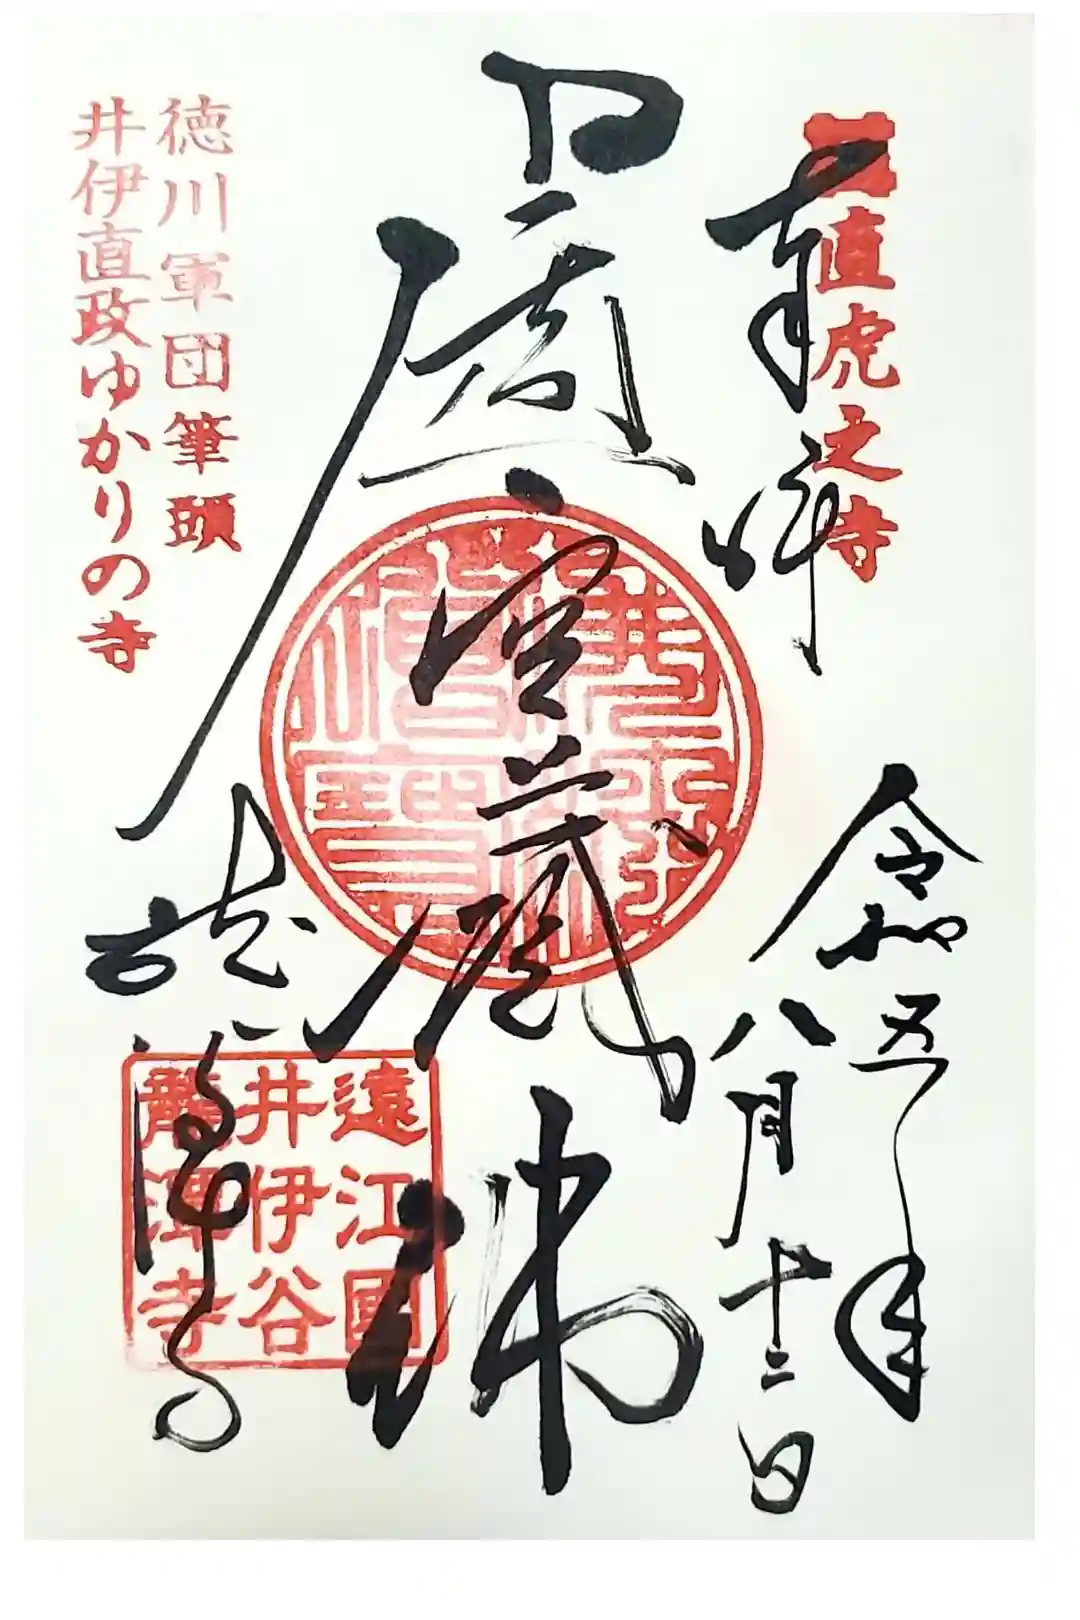 直虎之寺
奉拝
令和五年
八月十二日
虚空蔵
龍潭寺
遠江國
井伊谷
龍潭寺
徳川軍団筆頭
井伊直政ゆかりの寺